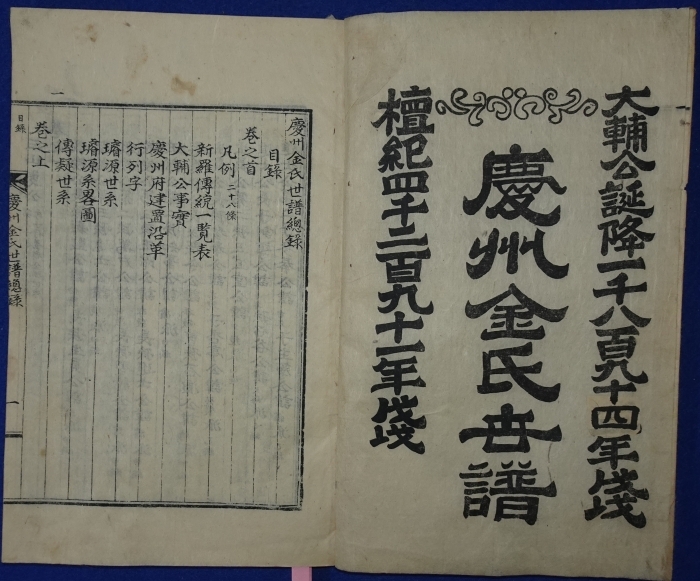 大輔公誕降一千八百九十四年
慶州金氏世譜
檀紀四千二百九十一年
慶州金氏世譜總錄
目錄
卷之首
凡例 二十八條
新羅傳統一覧表
大輔公事實
慶州府建置沿革
行列字
璿源世系
璿源系畧圖
傳疑世系
卷之上
目錄
慶州金氏世譜總錄 一